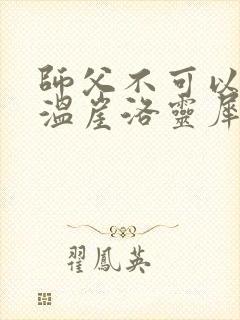 師父不可以
溫崖洛靈犀
翟鳳英